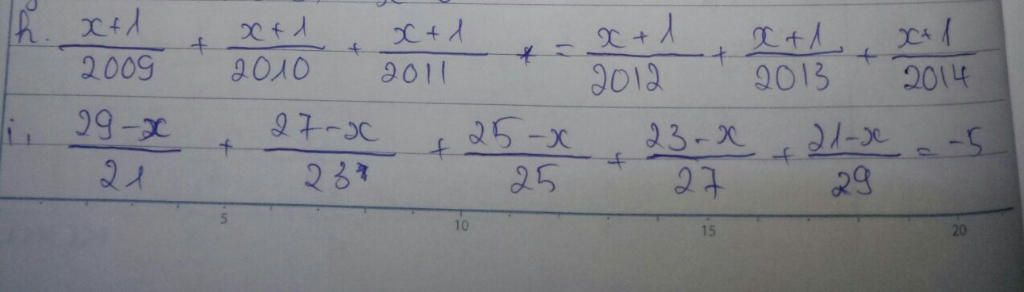 h. x+1/2009 + x+1/2010 + x+1/2011 = x+1/2012 + x+1/2013 + x+1/2014
i, 29-x/21 + 27-x/23 + 25-x/25 + 23-x/27 + 21-x/29 = -5
5 10 15 20